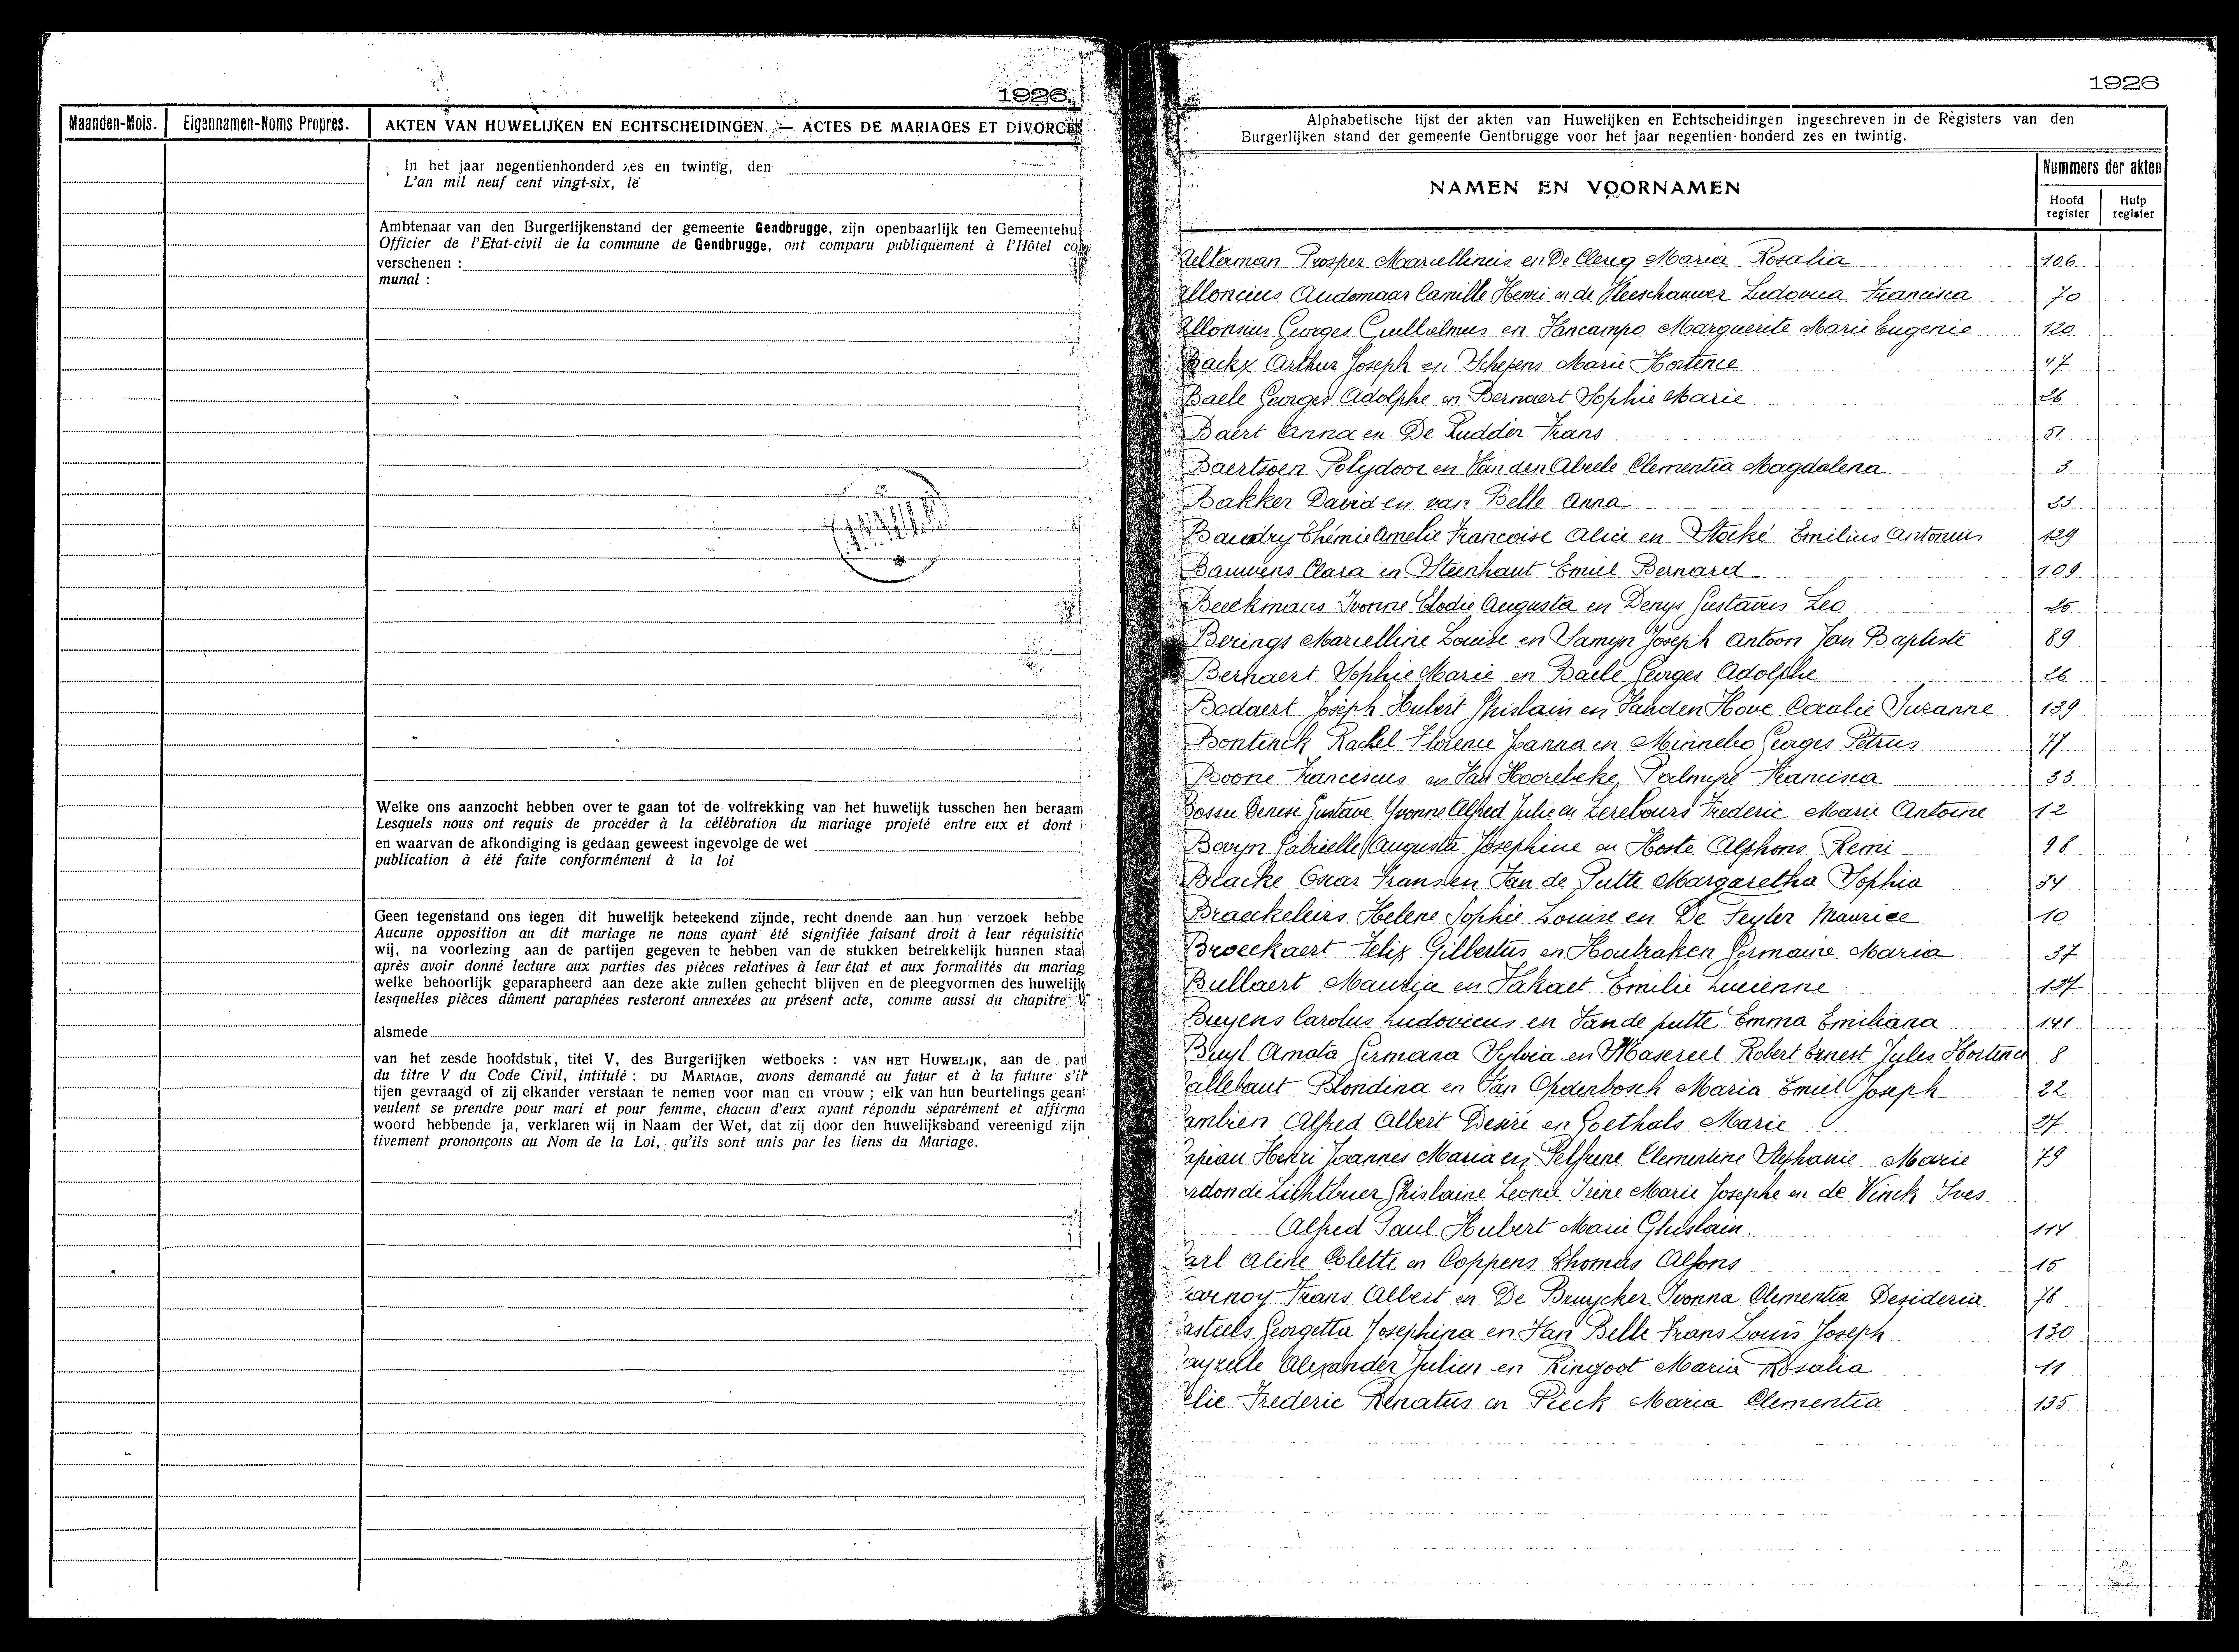 1926
Maanden-Mois. Eigennamen-Noms Propres. AKTEN VAN HUWELIJKEN EN ECHTSCHEIDINGEN. — ACTES DE MARIAGES ET DIVORCES
In het jaar negentienhonderd zes en twintig, den
L'an mil neuf cent vingt-six, le
Ambtenaar van den Burgerlijkenstand der gemeente Gendbrugge, zijn openbaarlijk ten Gemeentehui
Officier de l'Etat-civil de la commune de Gendbrugge, ont comparu publiquement à l'Hôtel com
verschenen :
munal :
Welke ons aanzocht hebben over te gaan tot de voltrekking van het huwelijk tusschen hen beraam
Lesquels nous ont requis de procéder à la célébration du mariage projeté entre eux et dont
en waarvan de afkondiging is gedaan geweest ingevolge de wet
publication à été faite conformément à la loi
Geen tegenstand ons tegen dit huwelijk beteekend zijnde, recht doende aan hun verzoek hebbe
Aucune opposition au dit mariage ne nous ayant été signifiée faisant droit à leur réquisitic
wij, na voorlezing aan de partijen gegeven te hebben van de stukken betrekkelijk hunnen staat
après avoir donné lecture aux parties des pièces relatives à leur état et aux formalités du mariag
welke behoorlijk geparapheerd aan deze akte zullen gehecht blijven en de pleegvormen des huwelijk
lesquelles pièces dûment paraphées resteront annexées au présent acte, comme aussi du chapitre V
alsmede
van het zesde hoofdstuk, titel V, des Burgerlijken wetboeks : VAN HET HUWELIJK, aan de par
du titre V du Code Civil, intitulé : DU MARIAGE, avons demandé au futur et à la future s'il
tijen gevraagd of zij elkander verstaan te nemen voor man en vrouw ; elk van hun beurtelings geant
veulent se prendre pour mari et pour femme, chacun d'eux ayant répondu séparément et affirma
woord hebbende ja, verklaren wij in Naam der Wet, dat zij door den huwelijksband vereenigd zijn
tivement prononçons au Nom de la Loi, qu'ils sont unis par les liens du Mariage.
1926
Alphabetische lijst der akten van Huwelijken en Echtscheidingen ingeschreven in de Registers van den
Burgerlijken stand der gemeente Gentbrugge voor het jaar negentien-honderd zes en twintig.
NAMEN EN VOORNAMEN
Nummers der akten
Hoofd register Hulp register
Aelterman Prosper Marcellinus en De Clercq Maria Rosalia 106
Alloncius Audomaar Camille Henri en de Vleeschauwer Ludovica Francisca 70
Allonsius Georges Guillielmus en Vancampo Marguerite Marie Eugenie 120
Backx Arthur Joseph en Schepens Marie Hortence 47
Baele Georges Adolphe en Bernaert Sophie Marie 26
Baert Anna en De Rudder Frans 51
Baertsoen Polydoor en Van den Abeele Clementia Magdalena 3
Bakker David en van Belle Anna
Baudry Thémie Amelie Francoise Alice en Stocké Emilius Antonius 129
Bauwens Clara en Steenhaut Emiel Bernard 109
Beeckmans Yvonne Elodie Augusta en Denys Gustavus Leo
Berings Marcelline Louise en Samyn Joseph Antoon Jan Baptiste 89
Bernaert Sophie Marie en Baele Georges Adolphe 26
Bodaert Joseph Hubert Ghislain en Vanden Hove Coralie Suzanne 139
Bontinck Rachel Florence Joanna en Minnebo Georges Petrus 77
Boone Franciscus en Van Hoorebeke Palmyre Francisca
Bossu Denise Gustave Yvonne Alfred Julie en Lerebours Frederic Marie Antoine 12
Bovyn Gabrielle Augusta Josephine en Hoste Alphons Remi 98
Bracke Oscar Frans en Van de Putte Margaretha Sophia
Braeckeleirs Helene Sophie Louise en De Seyter Maurice 10
Broeckaert Felix Gilbertus en Houtraken Germaine Maria 37
Bullaert Maurice en Vakaet Emilie Lucienne 137
Buyens Carolus Ludovicus en Van de putte Emma Emiliana 141
Buyl Amata Germana Sylvia en Masereel Robert Ernest Jules Hortence 8
Callebaut Blondina en Van Opdenbosch Maria Emiel Joseph 22
ambien Alfred Albert Desiré en Goethals Marie 27
apiau Henri Joannes Maria en Pelfrene Clementine Stephanie Marie 79
ardon de Lichtbuer Ghislaine Leonie Irène Marie Josephe en de Vinck Yves
Alfred Paul Hubert Marie Ghislain. 114
arl Aline Colette en Coppens Thomas Alfons 15
arnoy Frans Albert en De Bruycker Ivonna Clementia Desideria 78
asteels Georgetta Josephina en Van Belle Frans Louis Joseph 130
ayzeele Alexander Julien en Ringoot Maria Rosalia 11
Elie Frederic Renatus en Pieck Maria Clementia 135